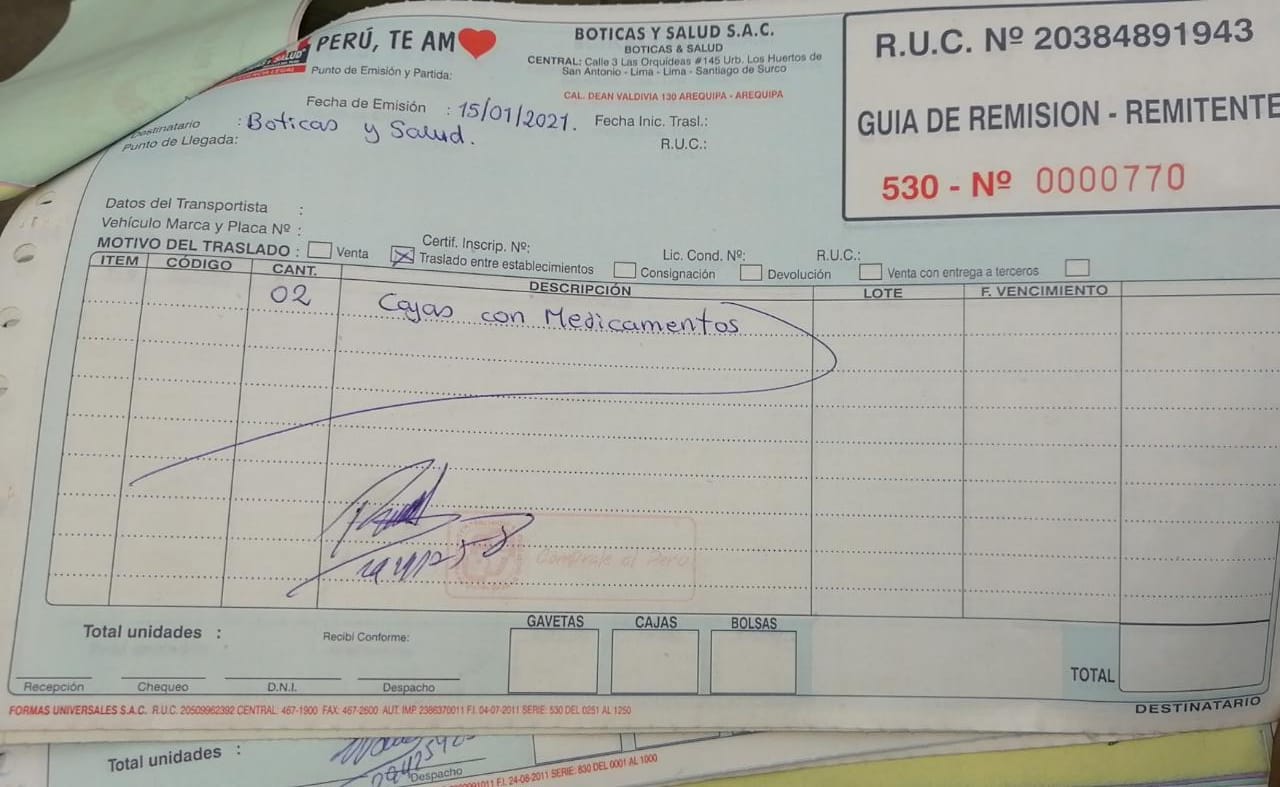 SALUD
PERÚ, TE AM
Punto de Emisión y Partida:
BOTICAS Y SALUD S.A.C.
BOTICAS & SALUD
CENTRAL: Calle 3 Las Orquídeas #145 Urb. Los Huertos de
San Antonio - Lima - Lima - Santiago de Surco
CAL. DEAN VALDIVIA 130 AREQUIPA - AREQUIPA
R.U.C. Nº 20384891943
GUIA DE REMISION - REMITENTE
530 - Nº 0000770
Fecha de Emisión : 15/01/2021. Fecha Inic. Trasl.:
Destinatario : Boticas y Salud. R.U.C.:
Punto de Llegada:
Datos del Transportista :
Vehículo Marca y Placa Nº :
Certif. Inscrip. Nº: Lic. Cond. Nº: R.U.C.:
MOTIVO DEL TRASLADO : Venta X Traslado entre establecimientos Consignación Devolución Venta con entrega a terceros
ITEM CÓDIGO CANT. DESCRIPCIÓN LOTE F. VENCIMIENTO
02 Cajas con Medicamentos
Comprale al Perú
Total unidades : Recibí Conforme: GAVETAS CAJAS BOLSAS
TOTAL
Recepción Chequeo D.N.I. Despacho
FORMAS UNIVERSALES S.A.C. R.U.C. 20509962392 CENTRAL: 467-1900 FAX: 467-2600 AUT. IMP. 2386370011 F.I. 04-07-2011 SERIE: 530 DEL 0251 AL 1250
DESTINATARIO
Total unidades :
Despacho
F.I. 24-08-2011 SERIE: 830 DEL 0001 AL 1000